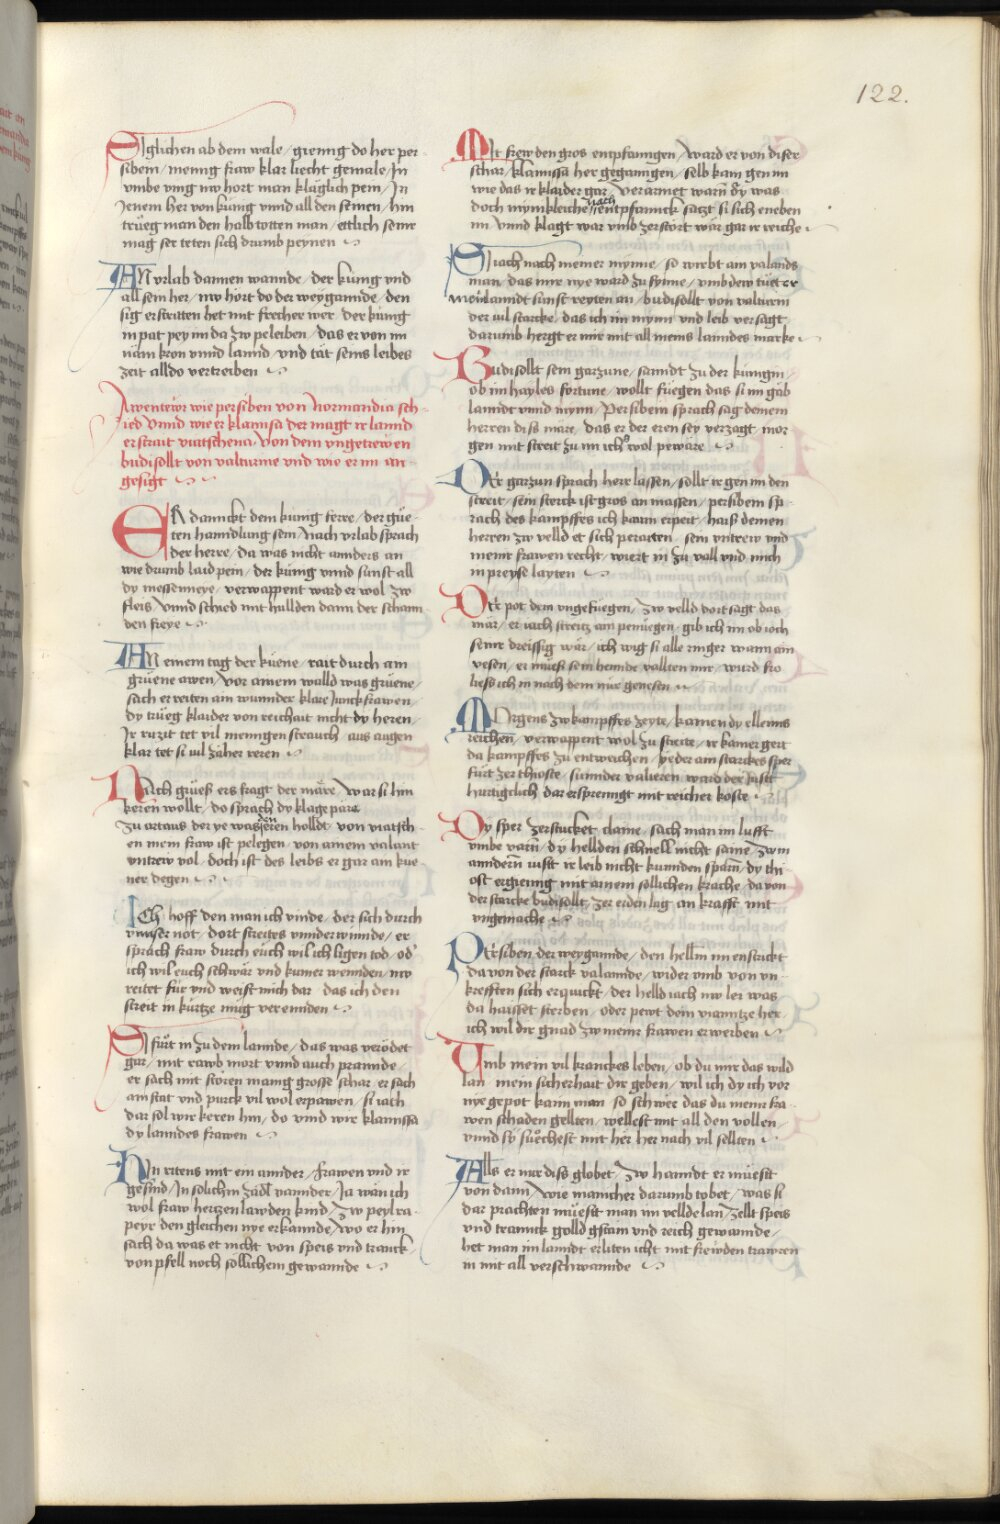 122.
Siglichen ab dem wale / gienng do her per-
sibein / menng fraw klar liecht gemale / In
vmbe ving nw hort man kläglich pein / In
Jenem her von küng vnnd all den seinen / hin
trueg man den halb totten man / ettlich seinr
mag ser teten sich drumb peynen
An vrlab dannen wannde / der küng vnd
all sein her / nw hort do der weygannde / den
sig erstritten het mit frecher wer / der küng
in pat pey im da zw peleiben / das er von im
näm kron vnnd lannd / vnd tät seins leibes
zeit alldo vertreiben
Awentewr wie persiben von Normandia sch-
ied vnnd wie er klamisa der magt ir lannd
erstrait viatschena / von dem vngetrewen
budisollt von valturnie vnd wie er im an-
gesigt
Er dannckt dem kunig ferre / der güe-
ten hanndlung sein / nach vrlab sprach
der herre / da was nicht annders an
wie drumb laid pein / der küng vnnd sunst all
dy messeineye / verwappent ward er wol zw
fleis / vnnd schied mit hullden dann der schann-
den freye
An einem tag der küene / rait durch ain
grüene awen / vor ainem walld was grüene /
sach er reiten ain wunnder klare Junckfrawen /
dy trüeg klaider von reichait nicht dy heren /
Ir ruzit tet vil menngen strauch / aus augen
klar tet si vil zäher reren
Nach grües ers fragt der märe / war si hin
keren wollt / do sprach dy klage pare
zu artaus der ye was den eren holldt / von viatsch-
en mein fraw ist pelegen / von ainem valant
vntrew vol / doch ist des leibs er gar ain küe-
ner degen
Ich hoff den man ich vinde / der sich durch
vnnser not / dort streites vnnderwinnde / er
sprach fraw durch euch wil ich ligen tod / od'
ich wil euch schwär vnd kumer wennden / nw
reitet für vnd weist mich dar / das ich den
streit in kürtze müg verennden
Si fürt in zu dem lannde / das was verödet
gar / mit rawb mort vnnd auch prannde /
er sach mit stören manig grosse schar / er sach
ain stat vnd purck vil wol erpawen / si iach
dar söl wir keren hin / do vind wir klamissa
dy lanndes frawen
Nun ritens mit ein annder / frawen vnd ir
gesind / In solichm zadl vannder / Ja wän ich
wol fraw hertzen lawden kind / zw peylra-
peyr den gleichen nye erkannde / wo er hin
sach da was et nicht von speis vnd tranck /
von pfell noch söllichem gewannde
Mit frewden gros enpfanngen / ward er von diser
schar / klamissa her geganngen / selb kam gen im
wie das ir klaider gar / verarmet warn dy was
doch mynnkleiche / nach entpfannck satzt si sich eneben
im vnnd klagt war vmb zerstört wär gar ir reiche
Si iach nach meiner mynne / so wirbt ain valands
man / das mir nye ward zu synne / vmb dew tüet er
mein lanndt sunst reyten an / budisollt von valturni
der vil starcke / das ich im mynn vnd leib versagt
darumb hergt er mir mit all meins lanndes marke
Budisollt sein garzune / sanndt zu der künigin /
ob im hayles fortune / wollt fuegen das si im gäb
lanndt vnnd mynn / Persibein sprach sag deinem
herren disß märe / das er der eren sey verzagt / mor-
gen mit streit zu im ich wol pewäre
Der garzun sprach herr lassen / sollt ir gen im den
streit / sein sterck ist gros an massen / persibein sp-
rach des kampffes ich kaum erpeit / hais deinen
herren zw velld et sich peraiten / sein vntrew vnd
meinr frawen recht / wiert in zu vall vnd mich
in preyse layten
Der pot dem vngefüegen / zw velld dort sagt das
mär / er iach streitz ain penüegen / gib ich im ob ioch
seinr dreissig wär / ich wig si alle ringer wann ain
vesen / er müest sein hennde vallten mir / wurd fro
lies ich in nach dem nür genesen
Morgens zw kampffes zeyte / kamen dy ellenns
reichen / verwappent wol zu streite / ir kainer gert
da kampffes zu entweichen / yeder ain starckes sper
fürt zer thioste / sunnder valieren ward der Justt
hurtigclich dar ersprenngt mit reicher koste
Dy sper zerstucket claine / sach man im lufft
vmbe varn / dy hellden schnell nicht saine / zwm
anndern iustt ir leib nicht kunnden sparn / dy thi-
ost ergienng mit ainem söllichen krache / da von
der starcke budisollt / zer erden lag an krafft mit
vngemache
Persiben der weygannde / den hellm im enstrickt
da von der starck valannde / wider vmb von vn-
krefften sich erquickt / der helld iach nw ler was
da haisset sterben / oder pewt dein vianntze her
ich wil dir gnad zw meinr frawen erwerben
Umb mein vil kranckes leben / ob du mir das wild
lan / mein sicherhait dir geben / wil ich dy ich vor
nye gepot kaim man / so schwer das du meinr fra-
wen schaden gellten / wellest mit all den vollen /
vnnd sy suechest mit her her nach vil sellten
Alls er mir diss globet / zw hanndt er müesit
von dann / wie manicher darumb tobet / was si
dar prachten müesit man im vellde lan / zellt speis
vnd tranнck golld gstain vnd reich gewannde /
het man im lanndt erliten icht mit frewden trawren
in mit all verschwannde